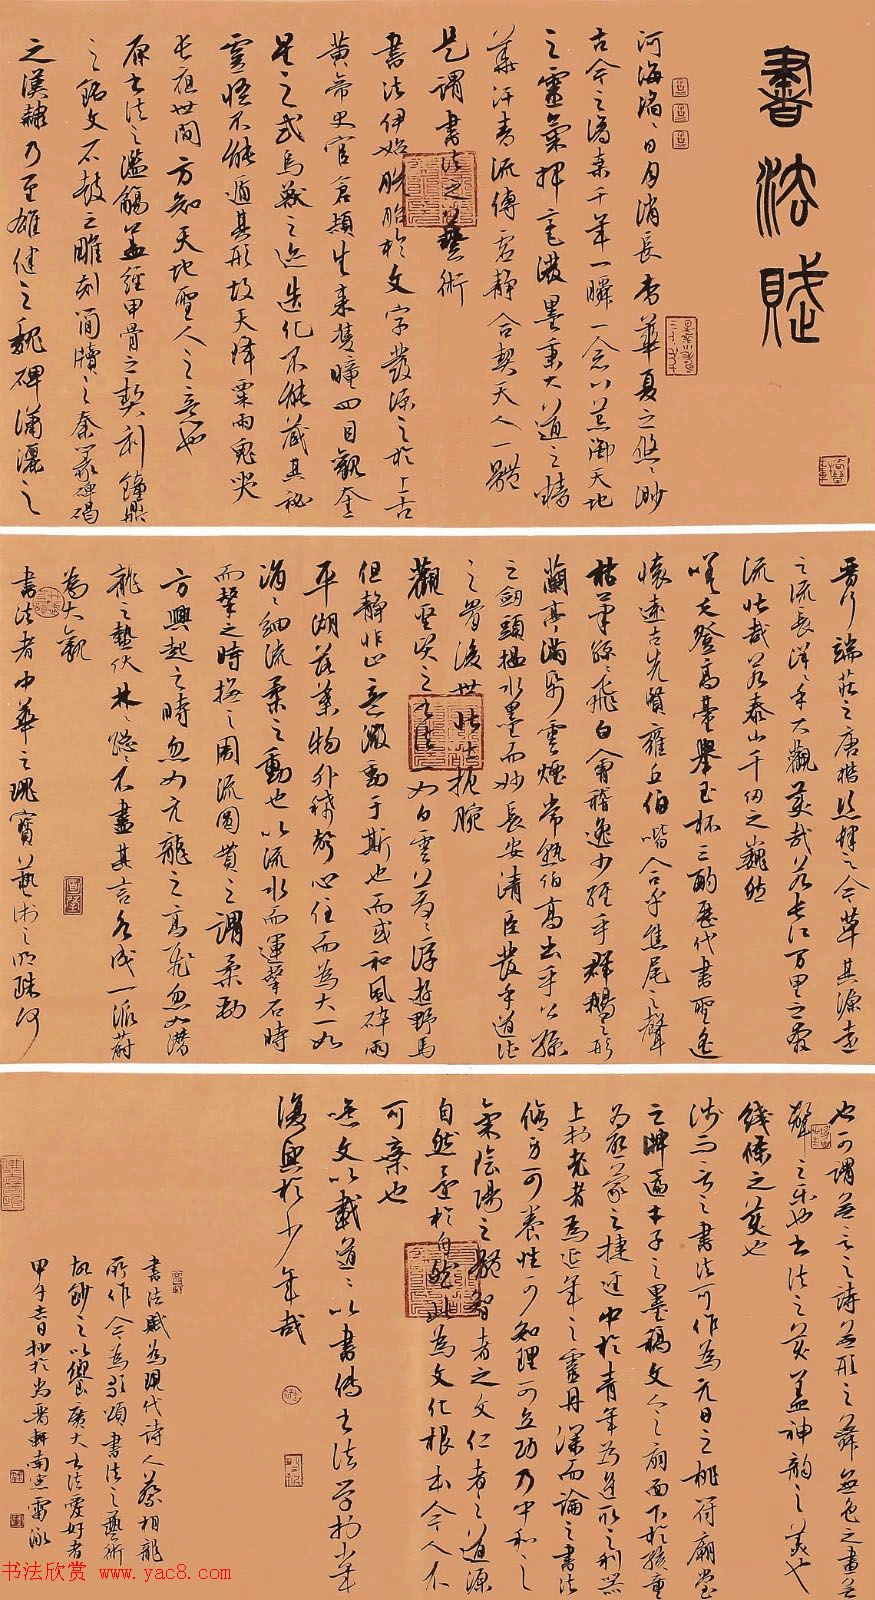 書法賦
河海滔滔日月消長書華夏之悠悠渺
古今之滄桑千年一瞬一念以意御天地
之靈氣揮毫潑墨秉大道之精
華汗青流傳虛靜合契天人一體
是謂書法之藝術
書法伊始胚胎於文字發源之於上古
黃帝史官倉頡生來雙瞳四目觀奎
星之式鳥獸之迹造化不能藏其秘
靈怪不能遁其形故天降粟雨鬼哭
長夜世間方知天地聖人之意也
原書法之濫觴蓋經甲骨之契利鐘鼎
之銘文石鼓之雕刻簡牘之秦篆碑碣
之漢隸乃至雄健之魏碑瀟灑之
晉行端莊之唐楷恣肆之今草其源遠
之流長洋洋乎大觀美哉若長江萬里之奔
流壯哉若泰山千仞之巍然
嗟夫登高臺舉玉杯三酌歷代書聖遙
懷遠古先賢雍丘伯喈合乎焦尾之聲
枯筆絲絲飛白會稽逸少經手群鵝之形
蘭亭滿紙雲煙常熟伯高出乎公孫
之劍頭揾水墨而妙長安清臣發乎道德
之骨後世皆扼腕
觀聖賢之書法如白雲蒼蒼浮遊野馬
但靜非止意激動于斯也而或和風碎雨
平湖落葉物外穢聲心住而為大一如
涓涓細流柔之動也以流水而運擊石時
而擊之時撫之周流圓貫之謂柔動
方興起之時忽如亢龍之高飛忽如潛
龍之蟄伏林林總總不盡其言名成一派蔚
為大觀
書法者中華之瑰寶藝術之明珠何
也可謂無言之詩無形之舞無色之畫無
聲之樂也書法之美蓋神韻之美也
綫條之美也
淺而言之書法可作為元日之桃符廟堂
之牌匾夫子之墨稿文人之扇面下於孩童
為啟蒙之捷逕中於青年為進取之利器
上於老者為延年之靈丹深而論之書法
修身可養性可知理可立功乃中和之
氣陰陽之體智者之文仁者之道源
自然邃於自然此為文化根本今人不
可棄也
嗟文以載道道以書傳書法學於少年
復興於少年哉
書法賦為現代詩人蔡相龍
所作今為歌頌書法之藝術
故鈔之以饗廣大書法愛好者
書法欣赏 www.yac8.com